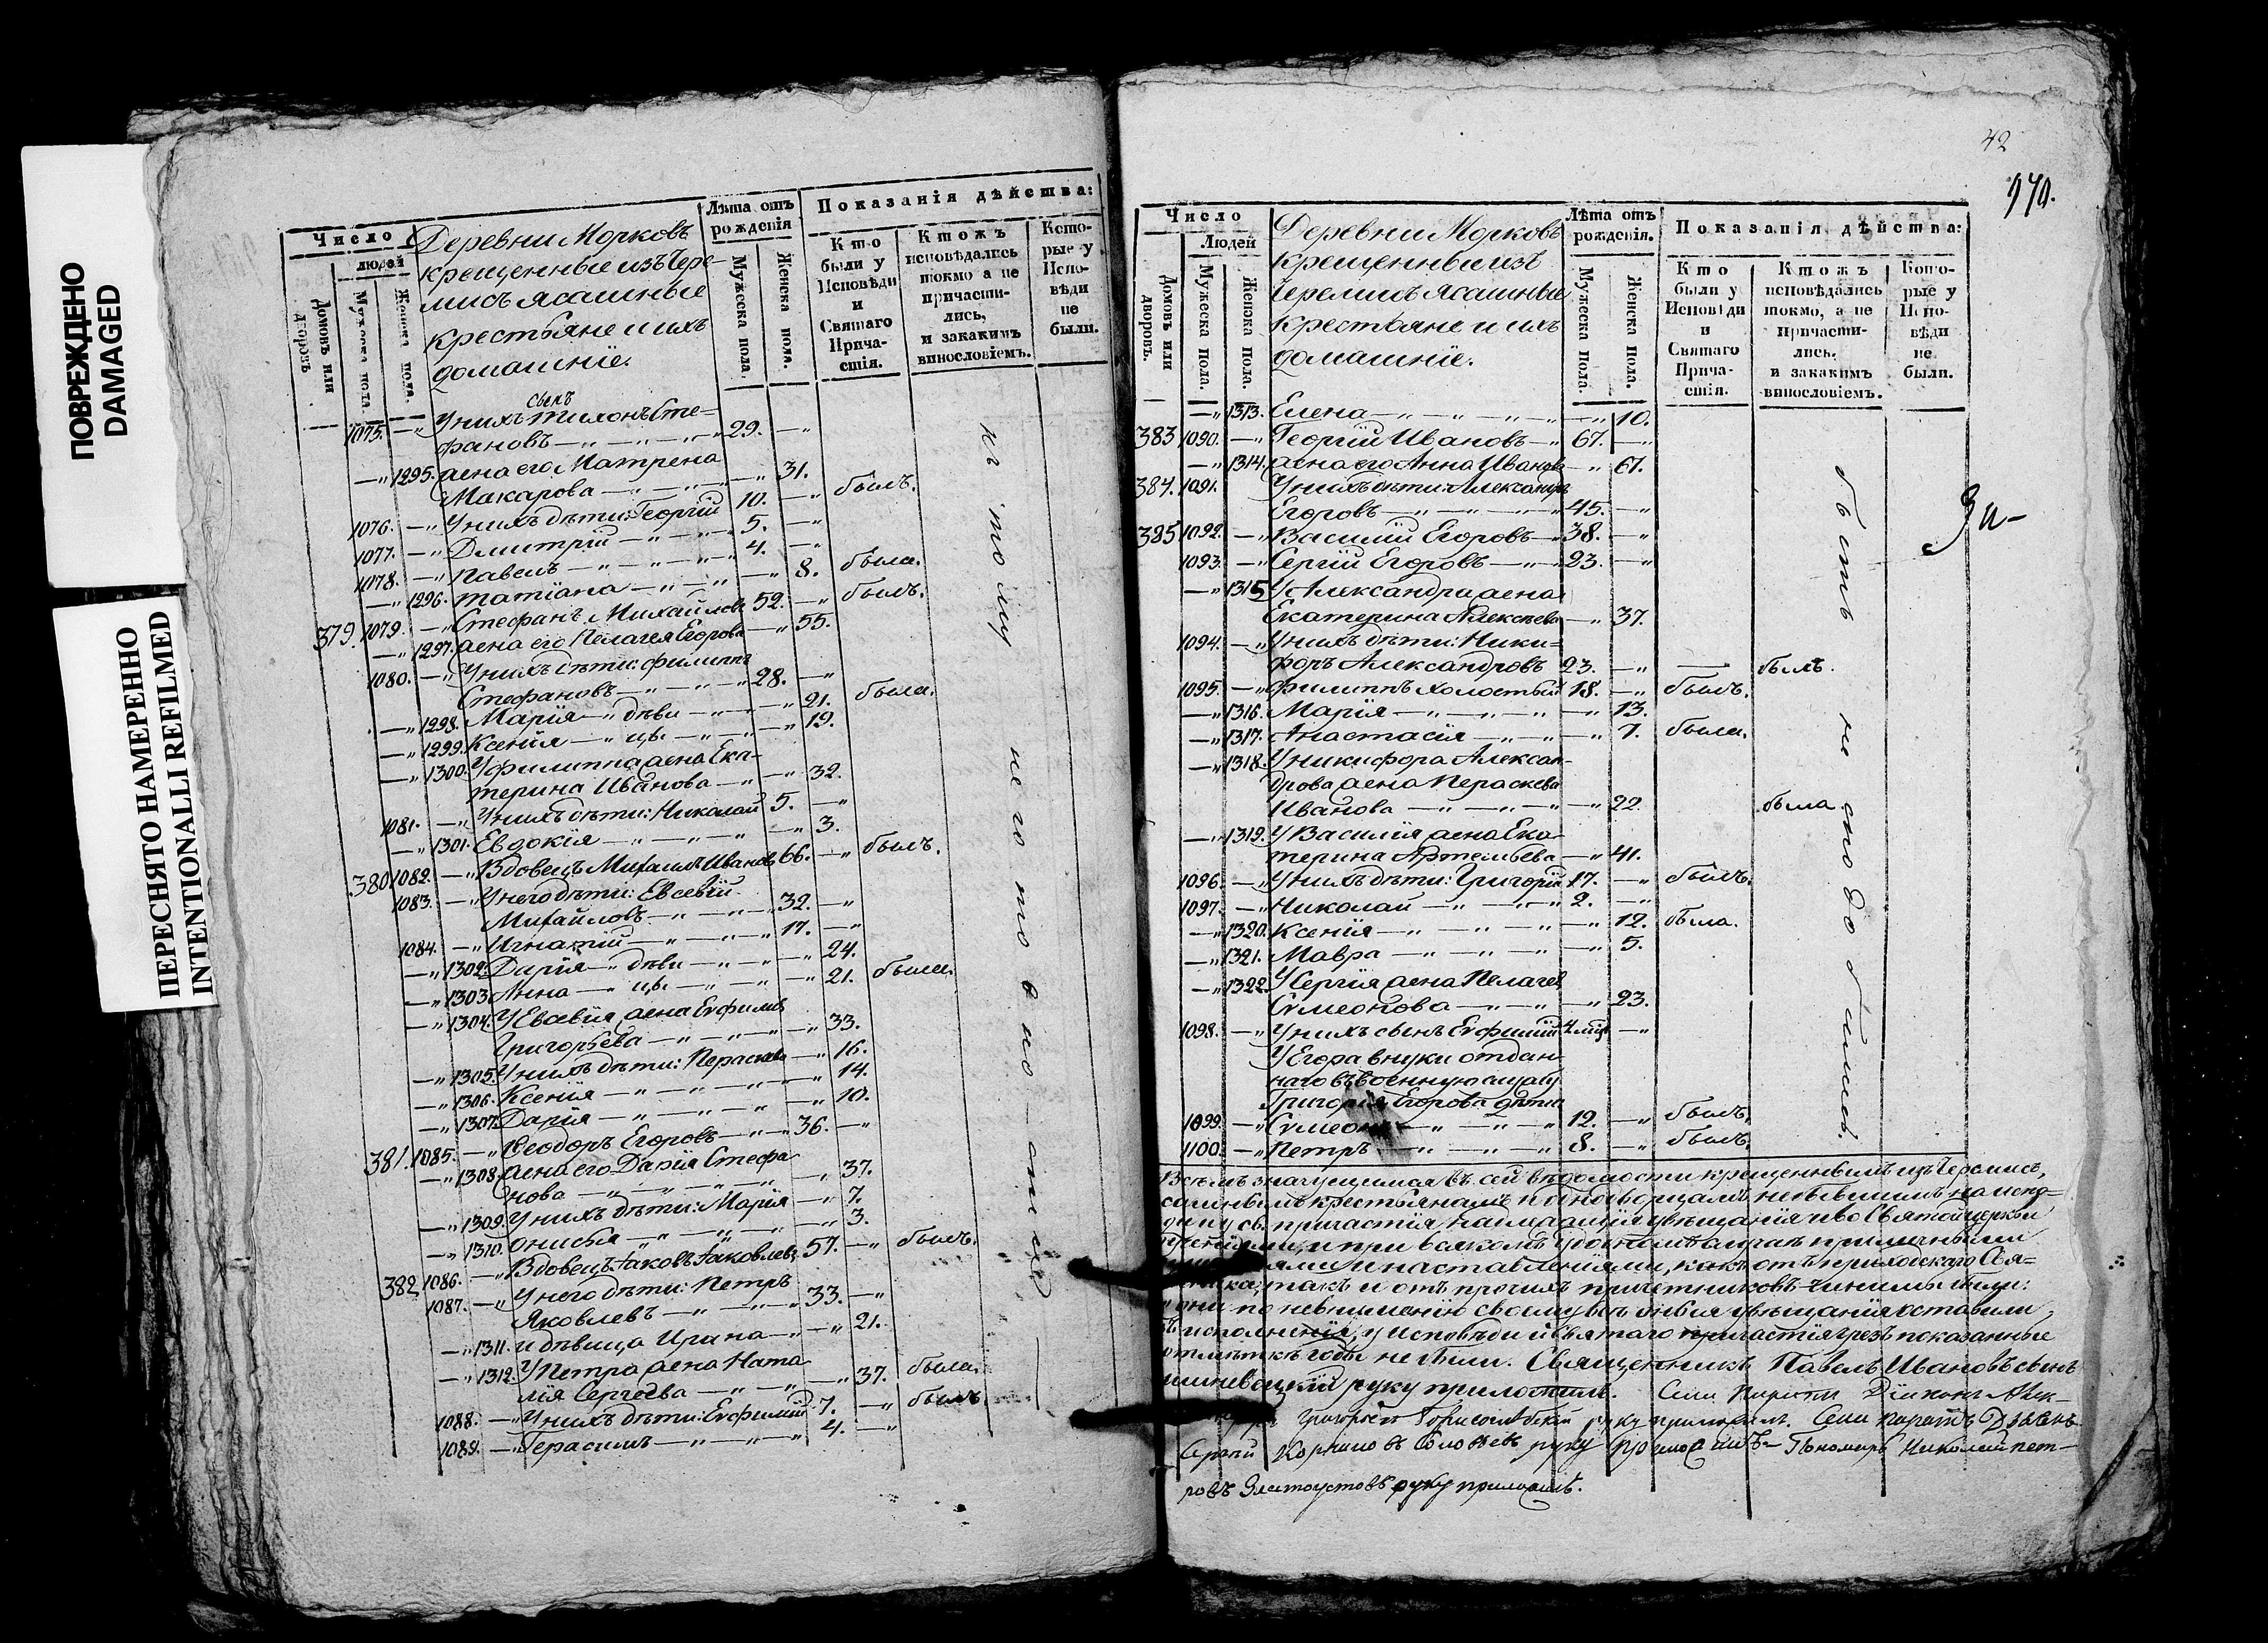 ПОВРЕЖДЕНО
DAMAGED
ПЕРЕСНЯТО НАМЕРЕННО
INTENTIONALLI REFILMED
Число
людей
Домовъ или дворовъ
Мужеска пола.
Женска пола.
Деревни Морковъ
крещенные изъ Чере-
мисъ ясашные
крестьяне и ихъ
домашніе.
Лѣта отъ рожденія
Мужеска пола.
Женска пола.
Показанія дѣйства:
Кто были у Исповѣди и Святаго Прича-стія.
Ктожъ исповѣдались токмо а не причасти-лись, и закакимъ винословіемъ.
Кото-рые у Испо-вѣди не были.
1075. —„ У нихъ сынъ Тихонъ Сте-
фановъ —„ —„ —„ 29. —„
—„ 1295. жена его Матрена
Макарова —„ —„ —„ 31.
1076. —„ У нихъ дѣти: Георгій 10. —„ былъ.
1077. —„ Дмитрій —„ —„ 5. —„
1078. —„ Павелъ —„ —„ —„ 4. —„
—„ 1296. Татіана —„ —„ —„ 8. была.
379. 1079. —„ Стефанъ Михайловъ 52. —„ былъ.
—„ 1297. жена его Пелагея Егорова —„ 55.
1080. —„ У нихъ дѣти: Филиппъ
Стефановъ —„ —„ —„ 28. —„
—„ 1298. Марія —„ дѣви —„ —„ 21. была.
—„ 1299. Ксенія —„ цы —„ —„ 19.
—„ 1300. У Филиппа жена Ека-
терина Иванова —„ —„ 32.
1081. —„ У нихъ дѣти: Николай 5. —„
—„ 1301. Евдокія —„ —„ —„ 3.
380. 1082. —„ Вдовецъ Михаилъ Ивановъ 66. —„ былъ.
1083. —„ У него дѣти: Евсевій
Михайловъ —„ —„ 32. —„
1084. —„ Игнатій —„ —„ —„ 17. —„
—„ 1302. Дарія —„ дѣви —„ —„ 24.
—„ 1303. Анна —„ цы —„ —„ 21. была.
—„ 1304. У Евсевія жена Евфимія
Григорьева —„ —„ —„ 33.
—„ 1305. У нихъ дѣти: Параскева —„ 16.
—„ 1306. Ксенія —„ —„ —„ 14.
—„ 1307. Дарія —„ —„ —„ 10.
381. 1085. —„ Ѳеодоръ Егоровъ —„ 36. —„
—„ 1308. жена его Дарія Стефа
нова —„ —„ —„ —„ 37.
—„ 1309. У нихъ дѣти: Марія —„ 7.
—„ 1310. Онисья —„ —„ —„ 3.
382. 1086. —„ Вдовецъ Іаковъ Іаковлевъ 57. —„ былъ.
1087. —„ У него дѣти: Петръ
Яковлевъ —„ —„ —„ 33. —„
—„ 1311. и дѣвица Ирина —„ —„ 21.
—„ 1312. У Петра жена Ната
лія Сергѣева —„ —„ —„ 37. была.
1088. —„ У нихъ дѣти: Евфимій 7. —„ былъ.
1089. —„ Герасимъ —„ —„ —„ 4. —„
42
970.
Число
Людей
Домовъ или дворовъ.
Мужеска пола.
Женска пола.
Деревни Морковъ
крещенные изъ
Черемисъ ясашные
крестьяне и ихъ
домашніе.
Лѣта отъ рожденія.
Мужеска пола.
Женска пола.
Показанія дѣйства:
Кто были у Исповѣди и Святаго Прича-стія.
Ктожъ исповѣдались токмо, а не причасти-лись. и закакимъ винословіемъ.
Кото-рые у Испо-вѣди не были.
—„ 1313. Елена —„ —„ —„ —„ 10.
383 1090. —„ Георгій Ивановъ —„ 67. —„
—„ 1314. жена его Анна Иванова —„ 67.
384. 1091. У нихъ дѣти: Александръ
Егоровъ —„ —„ —„ 45. —„
385 1092. —„ Василій Егоровъ —„ 38. —„
1093. —„ Сергій Егоровъ —„ 23. —„
—„ 1315 У Александра жена
Екатерина Алексѣева —„ 37.
1094. —„ У нихъ дѣти: Ники-
форъ Александровъ 23. —„ — былъ.
1095. —„ Филиппъ холостый 18. —„ былъ.
—„ 1316. Марія —„ —„ —„ —„ 13.
—„ 1317. Анастасія —„ —„ —„ 7. была.
—„ 1318. У Никифора Алексан-
дрова жена Параскева
Иванова —„ —„ —„ —„ 22. была.
—„ 1319. У Василія жена Ека-
терина Артемьева —„ 41.
1096. —„ У нихъ дѣти: Григорій 17. —„ былъ.
1097. —„ Николай —„ —„ —„ 2. —„
—„ 1320. Ксенія —„ —„ —„ —„ 12. была.
—„ 1321. Мавра —„ —„ —„ —„ 5.
—„ 1322. У Сергія жена Пелагея
Сѵмеонова —„ —„ —„ 23.
1098. —„ У нихъ сынъ Евфимій —„
У Егора внуки отдан-
наго въ военную службу
Григорія Егорова дѣти
1099. —„ Сѵмеонъ —„ —„ —„ 12. —„ былъ.
1100. —„ Петръ —„ —„ —„ 8. —„ былъ.
Всѣмъ значущимся въ сей вѣдомости крещеннымъ изъ Черемисъ,
крестьянамъ и однодворцамъ не бывшимъ на испо-
св. причастія увѣщанія и во Святой церкви
и при всякомъ случаѣ приличными
и наставленіями, какъ отъ приходскаго Свя-
такъ и отъ прочихъ причетниковъ чинимы были:
они по невниманію своему увѣщанія оставили
у исповѣди и Святаго причастія чрезъ показанные
годы не были. Священникъ Павелъ Ивановъ сынъ
руку приложилъ. Діаконъ Алек-
руку приложилъ. Дьячекъ
руку приложилъ. Пономарь Николай Пет-
ровъ Златоустовъ руку приложилъ.